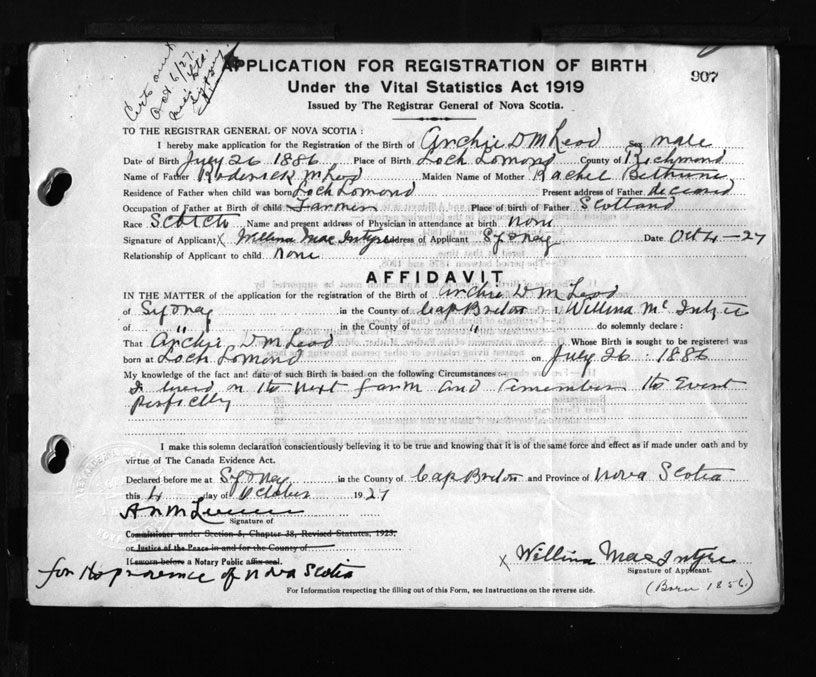 Certs
Oct 6/27.
APPLICATION FOR REGISTRATION OF BIRTH
907
Under the Vital Statistics Act 1919
Issued by The Registrar General of Nova Scotia.
TO THE REGISTRAR GENERAL OF NOVA SCOTIA :
I hereby make application for the Registration of the Birth of Archie D McLeod Sex male
Date of Birth July 26 1886 Place of Birth Loch Lomond County of Richmond
Name of Father Roderick McLeod Maiden Name of Mother Rachel Bethune
Residence of Father when child was born Loch Lomond Present address of Father deceased
Occupation of Father at Birth of child Farmer Place of birth of Father Scotland
Race Scotch Name and present address of Physician in attendance at birth none
Signature of Applicant X Willina MacIntyre Address of Applicant Sydney Date Oct 4-27
Relationship of Applicant to child none
AFFIDAVIT
IN THE MATTER of the application for the registration of the Birth of Archie D McLeod
of Sydney in the County of Cape Breton I, Willina McIntyre
of " in the County of " do solemnly declare :
That Archie D McLeod Whose Birth is sought to be registered was
born at Loch Lomond on July 26 : 1886
My knowledge of the fact and date of such Birth is based on the following Circumstances :-
I lived on the next farm and remember the Event
perfectly
I make this solemn declaration conscientiously believing it to be true and knowing that it is of the same force and effect as if made under oath and by
virtue of The Canada Evidence Act.
Declared before me at Sydney in the County of Cape Breton and Province of Nova Scotia
this 4 day of October 1927
Signature of
Commissioner under Section 5, Chapter 38, Revised Statutes, 1923.
or Justice of the Peace in and for the County of
If sworn before a Notary Public affix seal.
for the province of Nova Scotia
X Willina MacIntyre
Signature of Applicant.
(Born 1856)
For Information respecting the filling out of this Form, see Instructions on the reverse side.